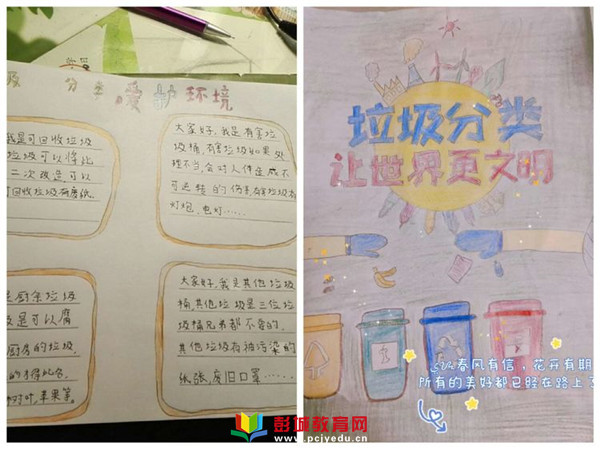 分类 爱护环境
我是可回收垃圾
垃圾可以将此
二次改造可以
可回收垃圾有废纸、
大家好,我是有害垃
圾桶,有害垃圾如果处
理不当,会对人体造成不
可逆转的伤害,有害垃圾有
灯炮、电灯……
厨余垃圾
圾是可以腐
厨房的垃圾,
树叶,苹果等。
大家好,我是其他垃圾
桶,其他垃圾是三位垃
圾桶兄弟都不要的,
其他垃圾有被污染的
纸张,废旧口罩……
垃圾分类
让世界更文明
春风有信,花开有期
所有的美好都已经在路上了
彭城教育网
www.pcjyedu.cn